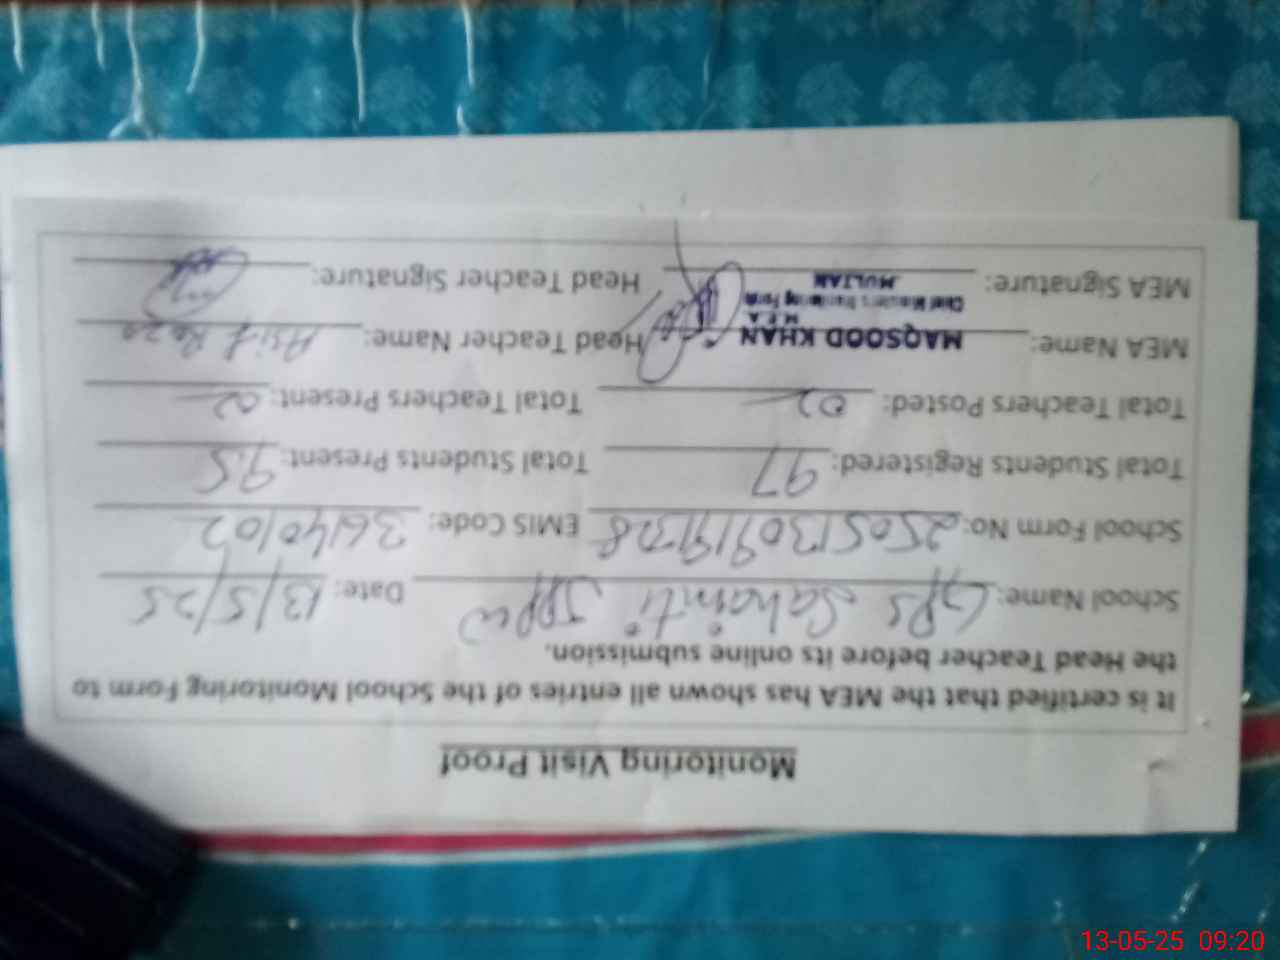 Monitoring Visit Proof
It is certified that the MEA has shown all entries of the School Monitoring Form to
the Head Teacher before its online submission.
School Name: GPS Date: 13/5/25
School Form No: EMIS Code:
Total Students Registered: 97 Total Students Present: 95
Total Teachers Posted: 02 Total Teachers Present: 02
MEA Name: MAQSOOD KHAN Head Teacher Name: Asif Raza
M.E.A
Chief Minister's Monitoring Force
MULTAN
MEA Signature: Head Teacher Signature:
13-05-25 09:20